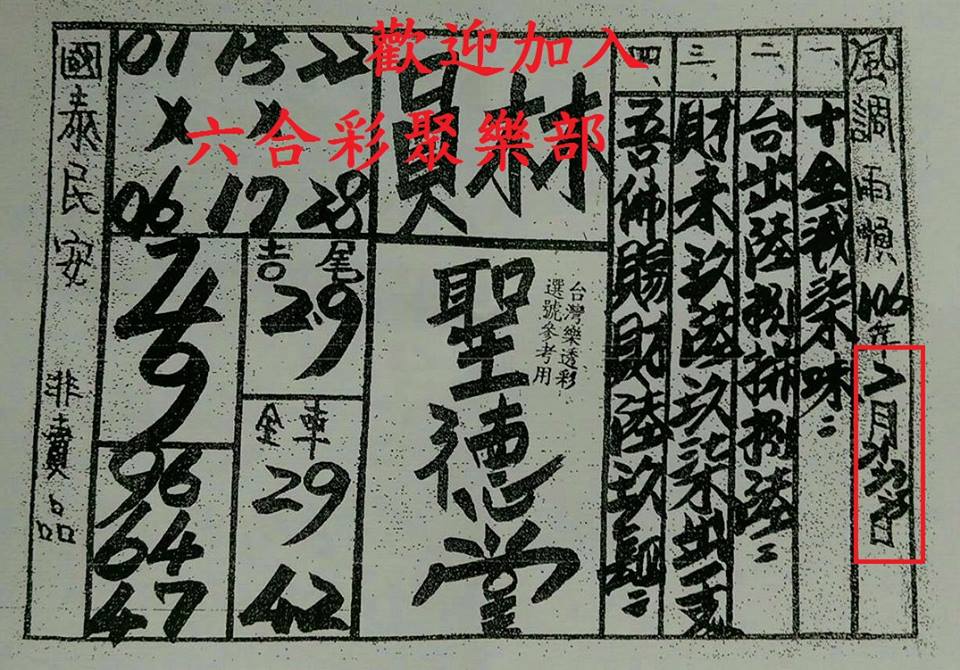 歡迎加入
六合彩聚樂部
風調雨順 106年二月
一、十全
二、台出陸捌拼捌陸
三、財來玖陸玖柒來出
四、吾佛賜財陸玖
員林
台灣樂透彩
選號參考用
聖德堂
01 15 22
X X
06 17 28
吉尾
29
全車
29
42
2
49
96
64
47
國泰民安 非賣品